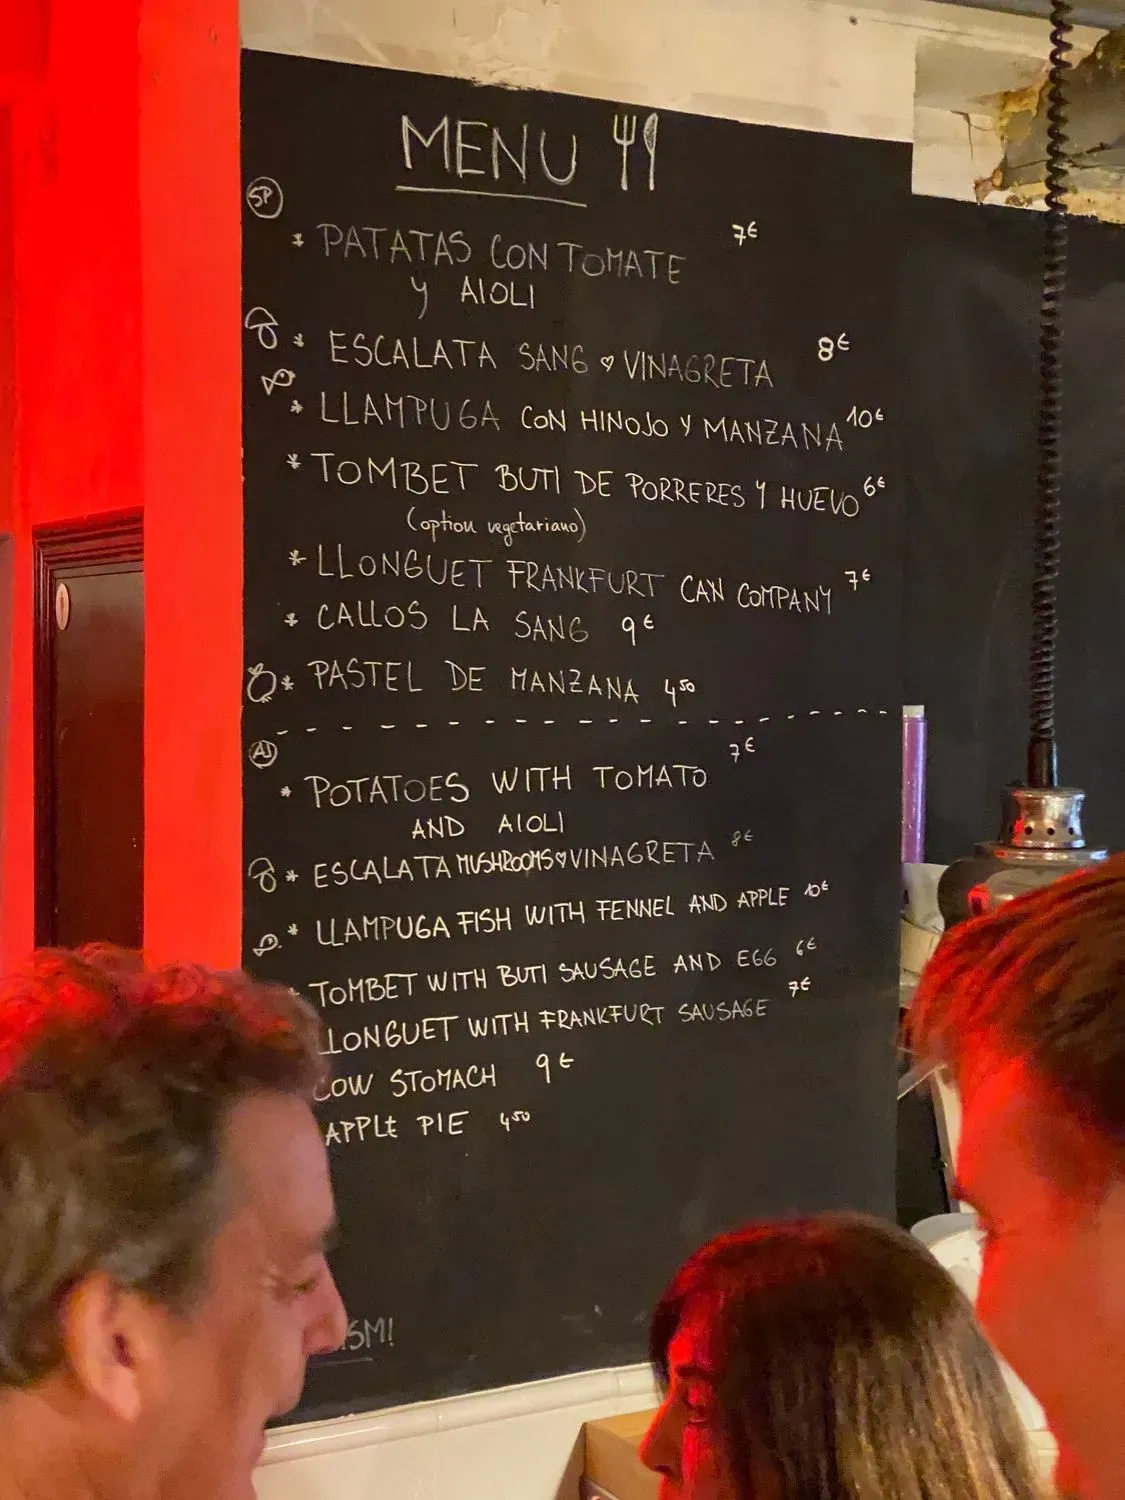 MENU
SP
* PATATAS CON TOMATE 7€
y AIOLI
* ESCALATA SANG ♡ VINAGRETA 8€
* LLAMPUGA CON HINOJO Y MANZANA 10€
* TOMBET BUTI DE PORRERES Y HUEVO 6€
(option vegetariano)
* LLONGUET FRANKFURT CAN COMPANY 7€
* CALLOS LA SANG 9€
* PASTEL DE MANZANA 4,50
AJ
* POTATOES WITH TOMATO 7€
AND AIOLI
* ESCALATA MUSHROOMS ♡ VINAGRETA 8€
* LLAMPUGA FISH WITH FENNEL AND APPLE 10€
TOMBET WITH BUTI SAUSAGE AND EGG 6€
LLONGUET WITH FRANKFURT SAUSAGE 7€
COW STOMACH 9€
APPLE PIE 4,50
ISM!